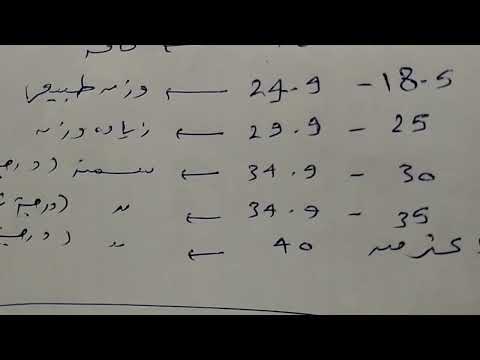 18.5 - 24.9 ← وزن طبيعي
25 - 29.9 ← زيادة وزن
30 - 34.9 ← سمنة (درجة
35 - 34.9 ← " (درجة
أكثر من 40 ← " (درجة